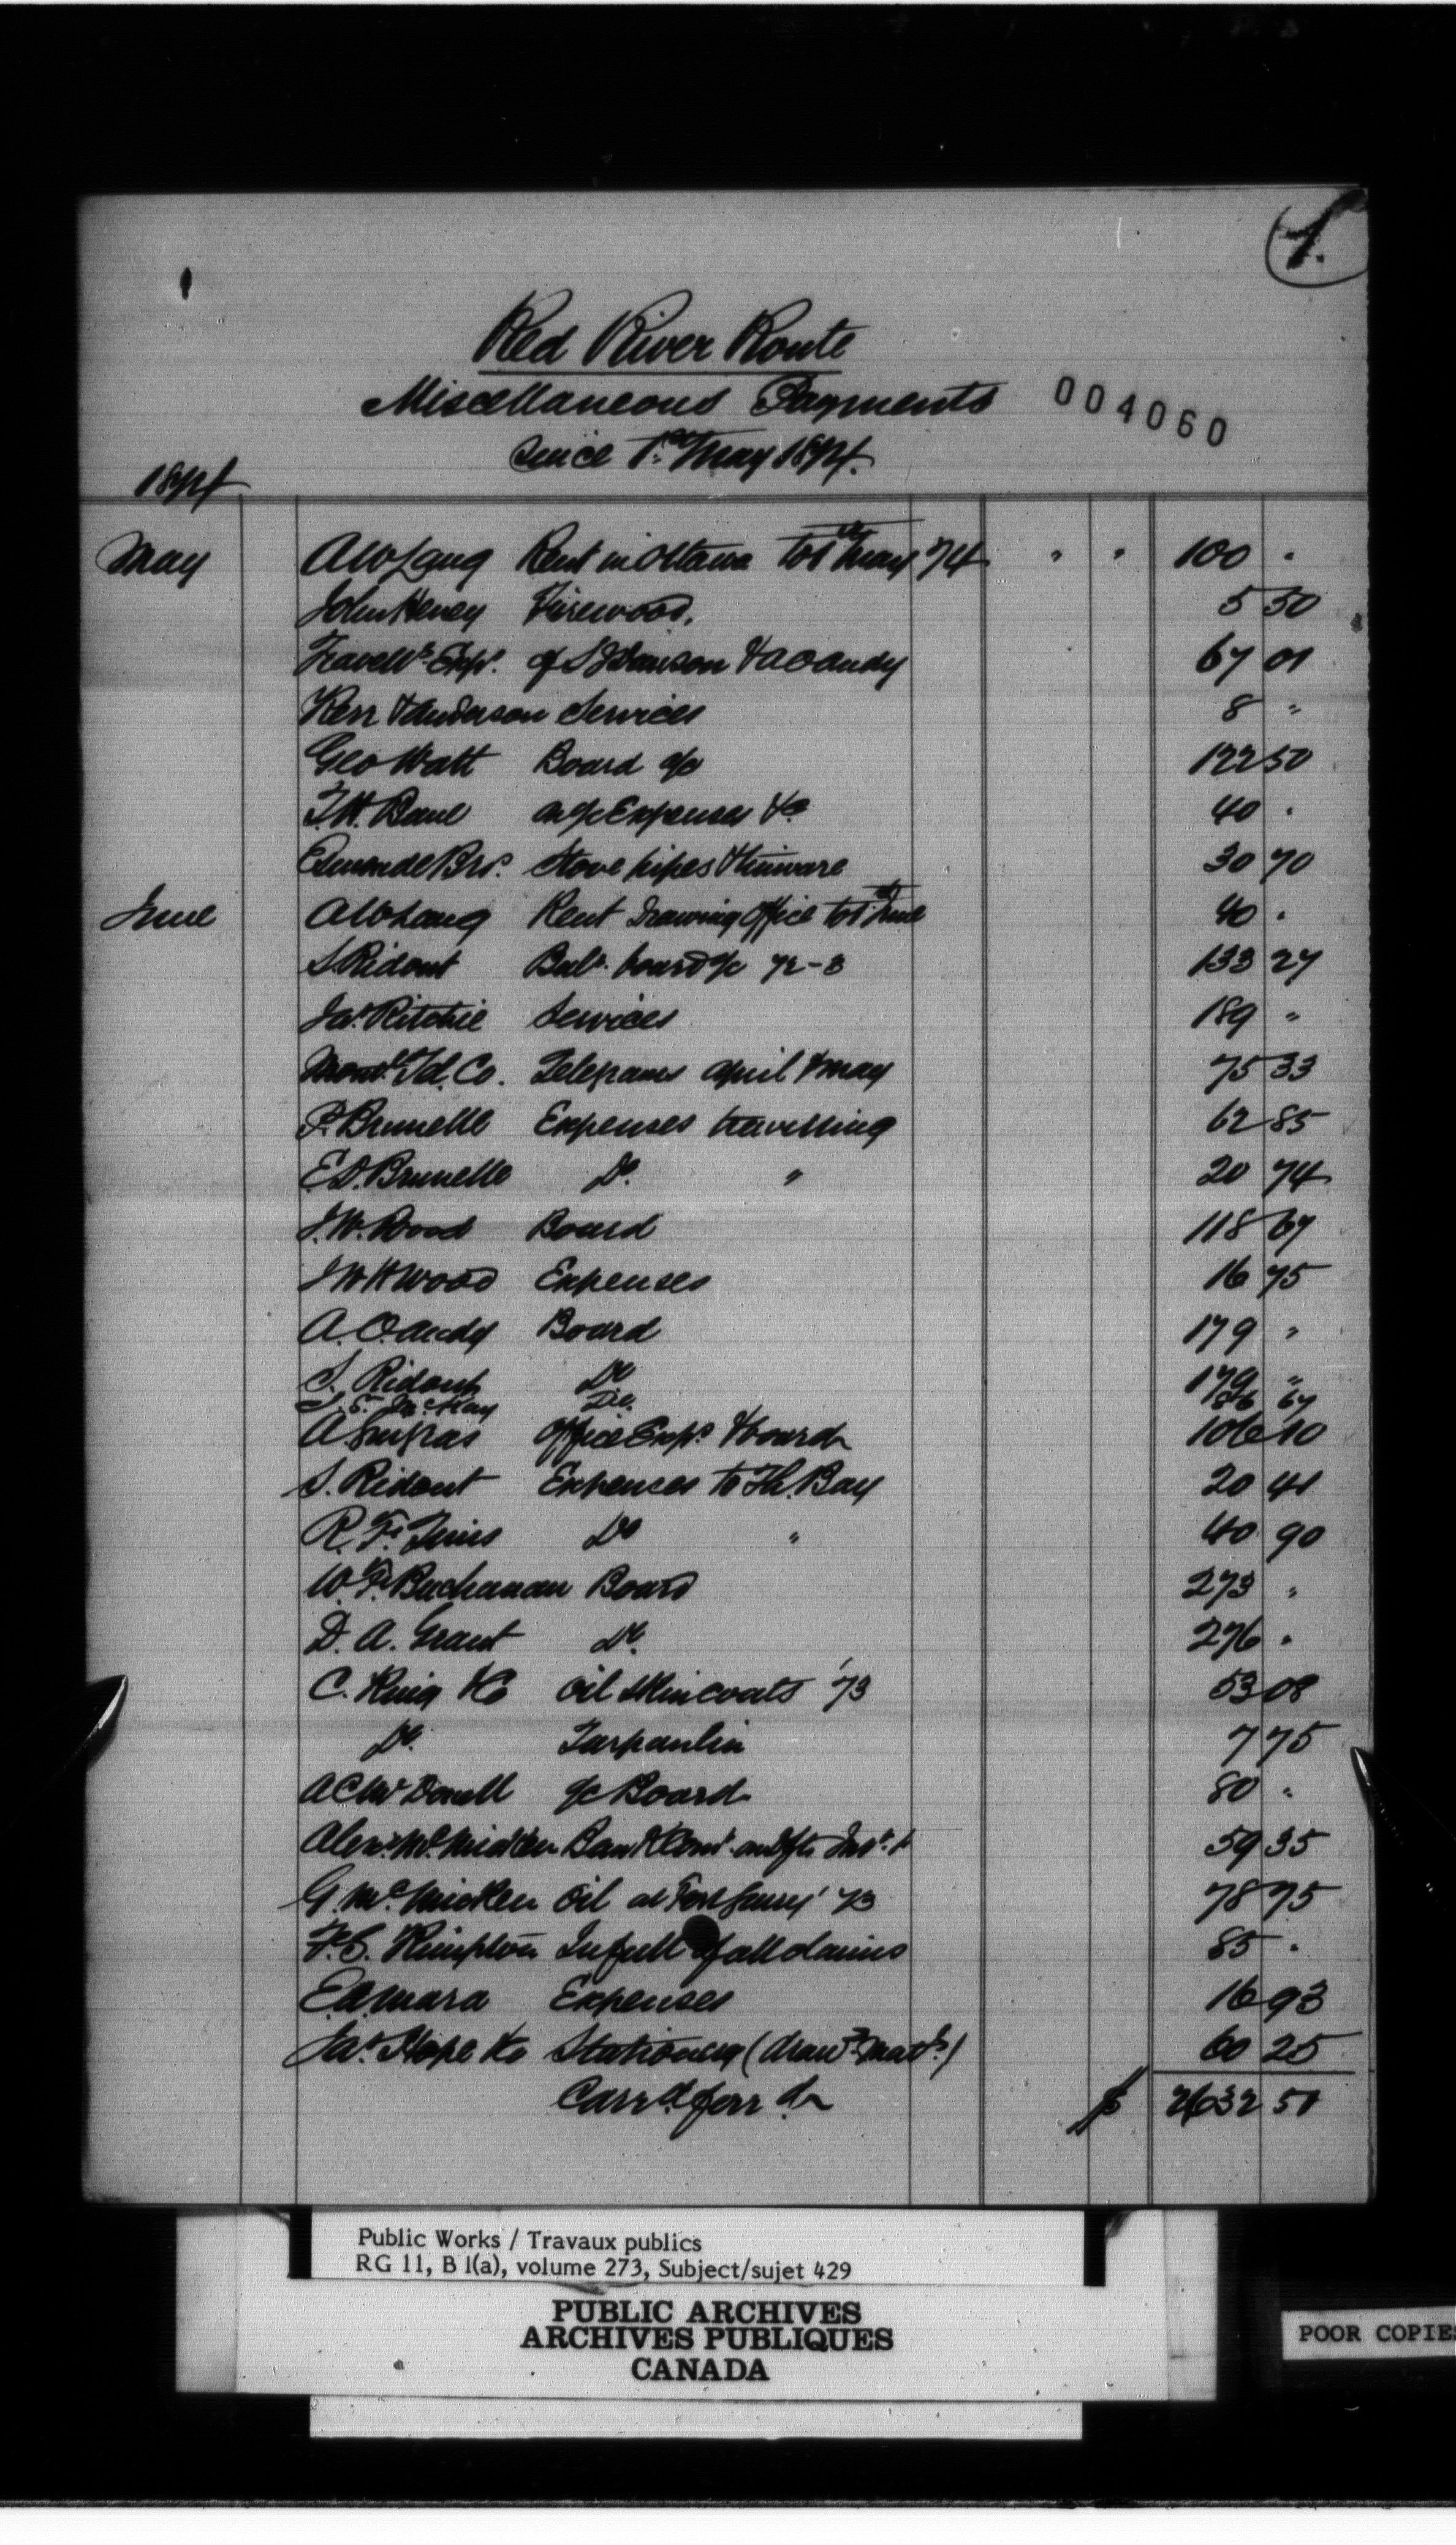 1.
Red River Route
Miscellaneous Payments 004060
Since 1st May 1874.
1874
May A W Lang Rent in Ottawa to 1st May 74 " " 100 "
John Heney Firewood. 5 50
Travellg Exps. of S J Dawson & A O'Candy 67 01
Kerr & Anderson Services 8 "
Geo Watt Board a/c 122 50
T. H. on a/c Expenses &c 40 "
Esmonde Bros. Stove pipes & tinware 30 70
June A W Lang Rent Drawing Office to 1st June 40 "
S Ridout Bale. board a/c 72-3 133 27
Jas. Ritchie Services 189 "
Montl. Tel. Co. Telegrams April & May 75 33
P. Brunelle Expenses travelling 62 85
E. D. Brunelle Do. " 20 74
J. W. Wood Board 118 67
J W H Wood Expenses 16 75
A. O. Board 179 "
S. Ridout Do 179 "
McKay Do. 67
A Office Exps. & board 106 10
S. Ridout Expences to Th. Bay 20 41
R. F. Do " 40 90
W. F. Buchanan Board 273 "
D. A. Grant Do. 276 "
C. King & Co Oil skin coats '73 53 08
Do. Tarpaulin 7 75
A C McDonell a/c Board 80 "
Alexr. McMicken 59 35
G. McMicken Oil at Fort Garry '73 78 75
F. C. Kimpton In full of all claims 85 "
E. A. Mara Expenses 16 93
Jas. Hope & Co Stationery (drawg. matls.) 60 25
Carrd. forrd. $ 2632 51
Public Works / Travaux publics
RG 11, B 1(a), volume 273, Subject/sujet 429
PUBLIC ARCHIVES
ARCHIVES PUBLIQUES
CANADA
POOR COPIES